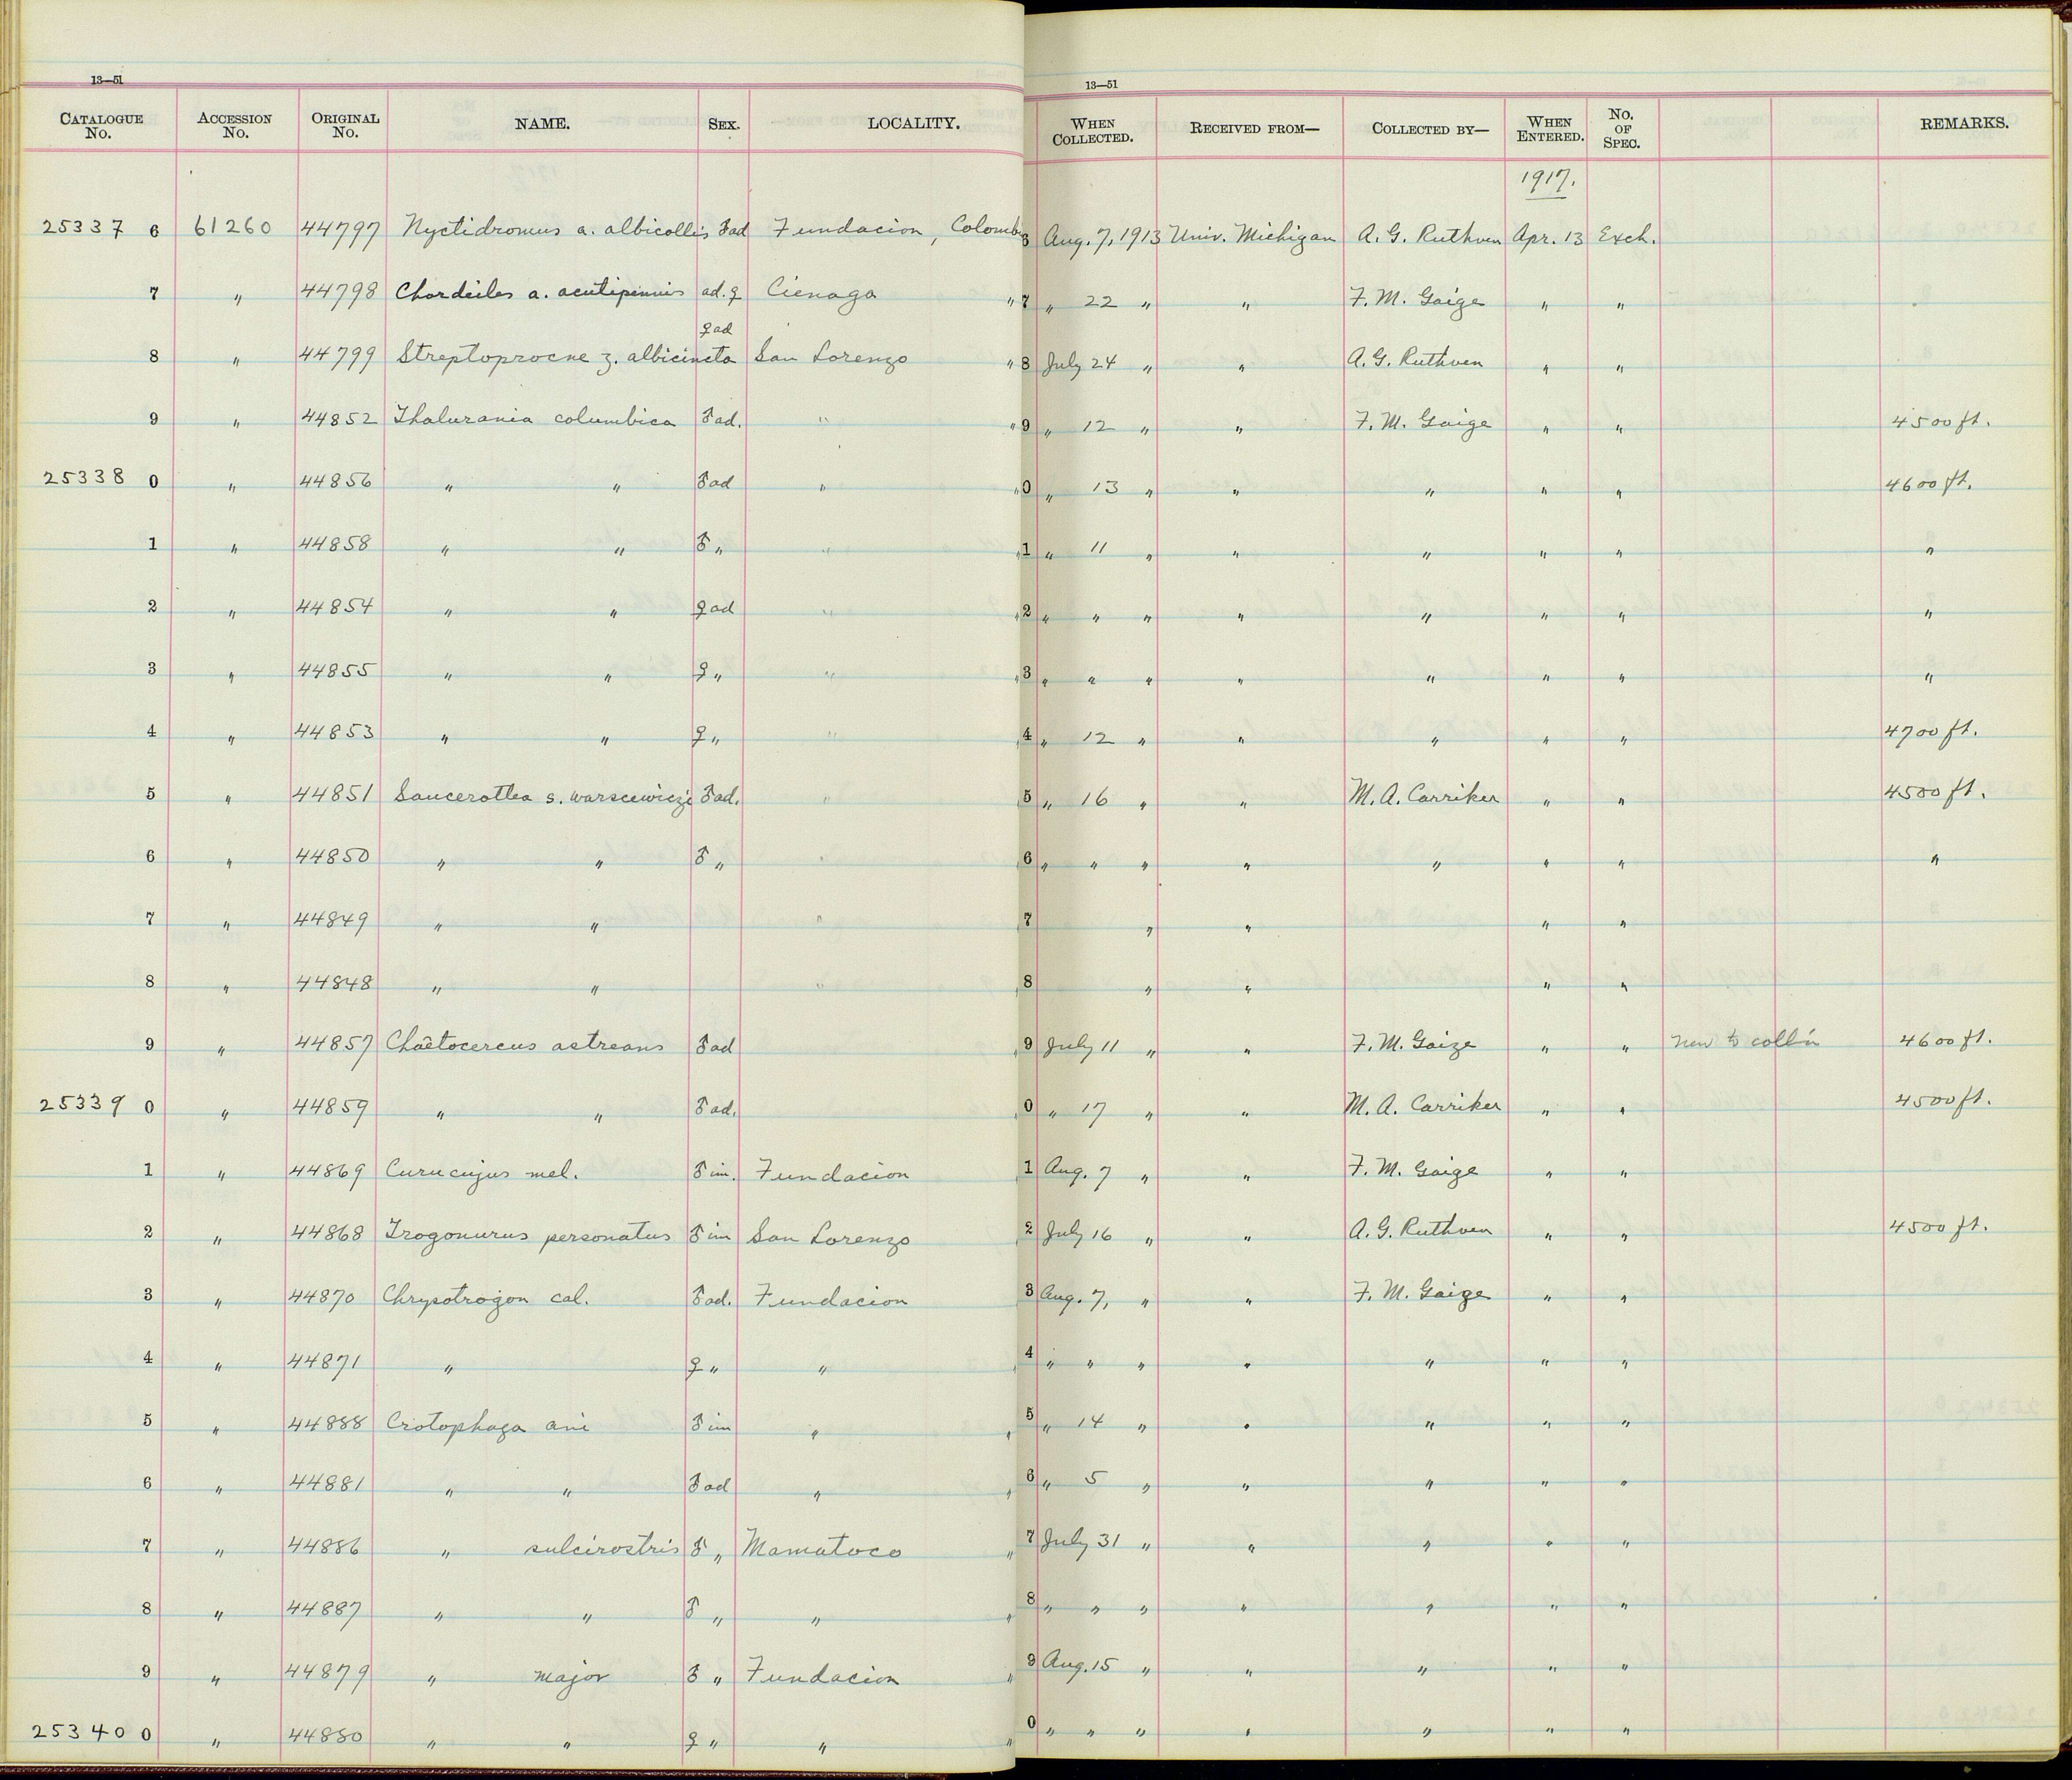 13—51
13—51
CATALOGUE No. ACCESSION No. ORIGINAL No. NAME. SEX. LOCALITY. WHEN COLLECTED. RECEIVED FROM— COLLECTED BY— WHEN ENTERED. No. OF SPEC. REMARKS.
1917.
25337 6 61260 44797 Nyctidromus a. albicollis ♂ad Fundacion, Colombia Aug. 7, 1913 Univ. Michigan A. G. Ruthven Apr. 13 Exch.
7 " 44798 Chordeiles a. acutipennis ad. ♀ Cienaga " 7 " 22 " " F. M. Gaige " "
8 " 44799 Streptoprocne z. albicincta ♀ad San Lorenzo " 8 July 24 " " A. G. Ruthven " "
9 " 44852 Thalurania columbica ♂ad. " " 9 " 12 " " F. M. Gaige " " 4500 ft.
25338 0 " 44856 " " ♂ad " " 0 " 13 " " " " " 4600 ft.
1 " 44858 " " ♂ " " " 1 " 11 " " " " " "
2 " 44854 " " ♀ad " " 2 " " " " " " " "
3 " 44855 " " ♀ " " " 3 " " " " " " " "
4 " 44853 " " ♀ " " " 4 " 12 " " " " " 4700 ft.
5 " 44851 Saucerottea s. warscewiczi ♂ad. " 5 " 16 " " M. A. Carriker " " 4500 ft.
6 " 44850 " " ♂ " " 6 " " " " " " " "
7 " 44849 " " " 7 " " " "
8 " 44848 " " " " 8 " " " "
9 " 44857 Chaëtocercus astreans ♂ad " 9 July 11 " " F. M. Gaige " " new to coll'n 4600 ft.
25339 0 " 44859 " " ♂ad. " 0 " 17 " " M. A. Carriker " " 4500 ft.
1 " 44869 Curucujus mel. ♂im. Fundacion " 1 Aug. 7 " " F. M. Gaige " "
2 " 44868 Trogonurus personatus ♂im San Lorenzo 2 July 16 " " A. G. Ruthven " " 4500 ft.
3 " 44870 Chrysotrogon cal. ♂ad. Fundacion 3 Aug. 7, " " F. M. Gaige " "
4 " 44871 " ♀ " " " 4 " " " " " " "
5 " 44888 Crotophaga ani ♂im " " 5 " 14 " " " " "
6 " 44881 " " ♂ad " " 6 " 5 " " " " "
7 " 44886 " sulcirostris ♂ " Mamatoco " 7 July 31 " " " " "
8 " 44887 " " ♂ " " " 8 " " " " " " "
9 " 44879 " major ♂ " Fundacion " 9 Aug. 15 " " " " "
25340 0 " 44880 " " ♀ " " " 0 " " " " " " "